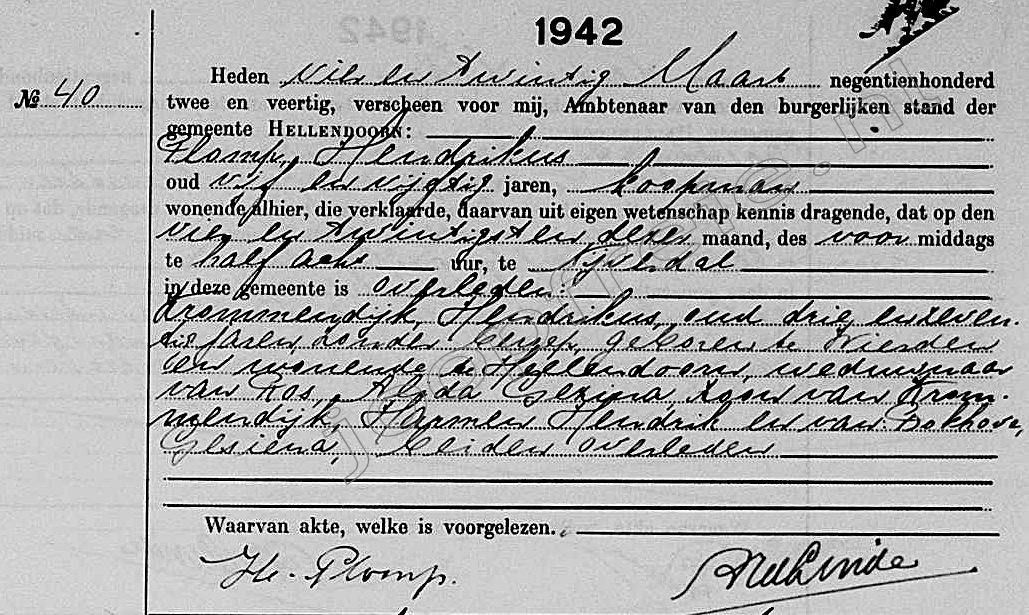 1942
Heden vier en twintig Maart negentienhonderd
№ 40
twee en veertig, verscheen voor mij, Ambtenaar van den burgerlijken stand der
gemeente HELLENDOORN:
Plomp, Hendrikus
oud vijf en vijftig jaren, koopman
wonende alhier, die verklaarde, daarvan uit eigen wetenschap kennis dragende, dat op den
vier en twintigsten dezer maand, des voor middags
te half acht uur, te Nijverdal
in deze gemeente is overleden:
Krommendijk, Hendrikus, oud drie en zeven-
tig jaren, zonder beroep, geboren te Wierden
en wonende te Hellendoorn, weduwnaar
van Ros, Aleida Gezina, zoon van Krom-
mendijk, Harmen Hendrik en van
Gesiena, beiden overleden
Waarvan akte, welke is voorgelezen.
He. Plomp.